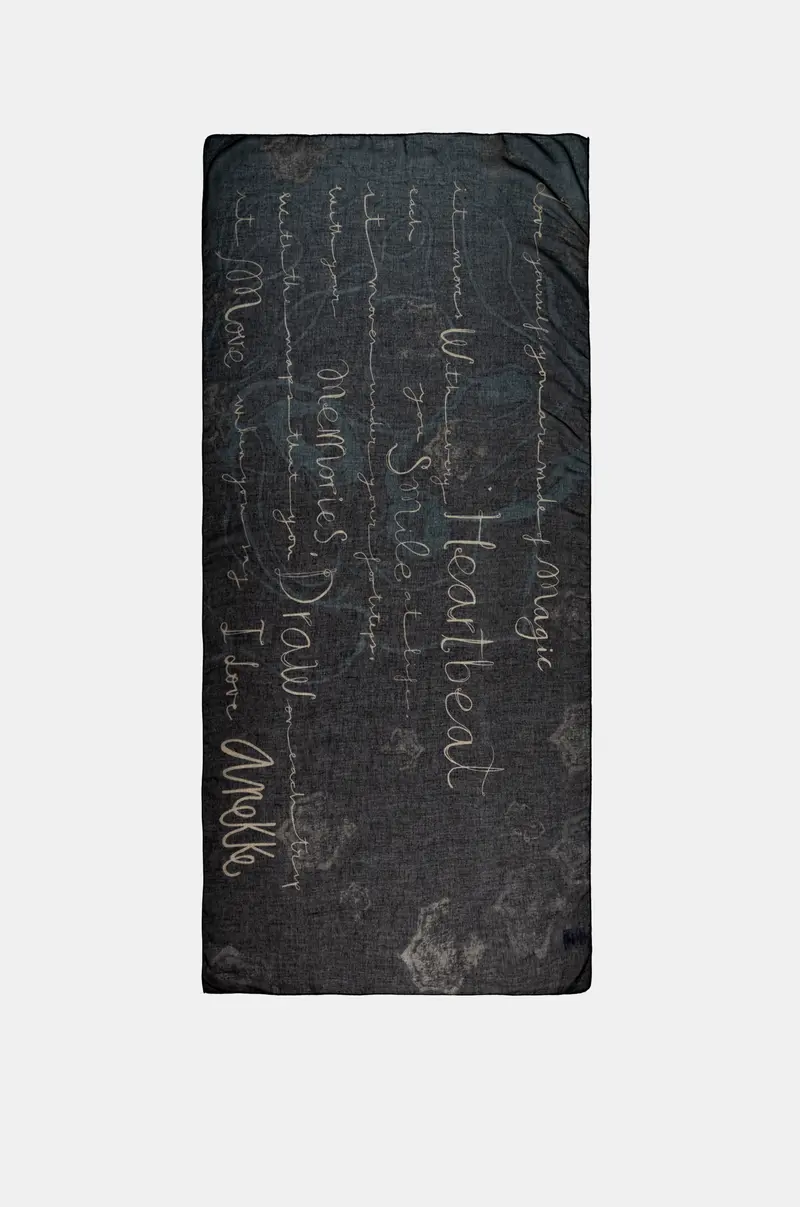 Love yourself you are made of Magic
it moves With every Heartbeat
each you Smile at life.
it moves under your footsteps,
with your Memories,
with the maps that you Draw on each trip
it Move when you say I love Anekke